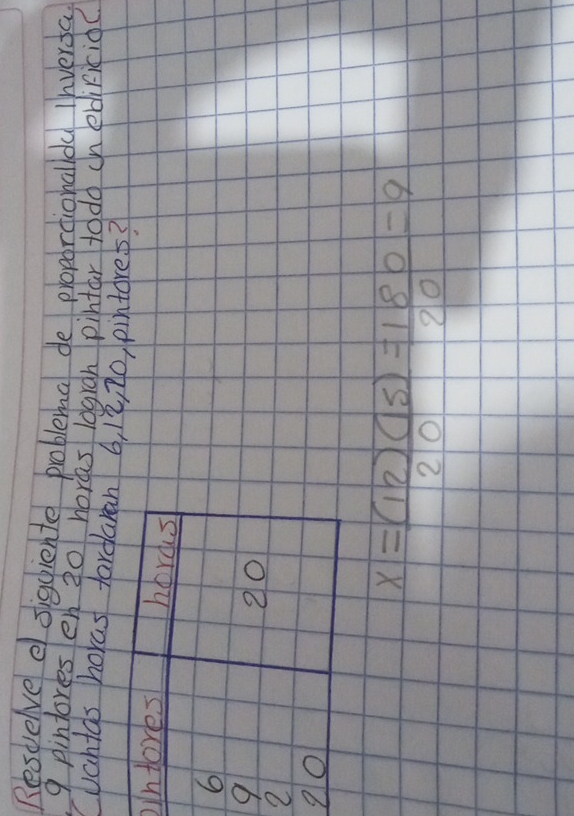 Resuelve el siguiente problema de proporcionalida Inversa.
9 pintores en 20 horas logran pintar todo un edificio
Cuantas horas tardaran 6,12,20, pintores?
pintores horas
6
9 20
2
20
x = (12)(15) = 180 = 9
20 20